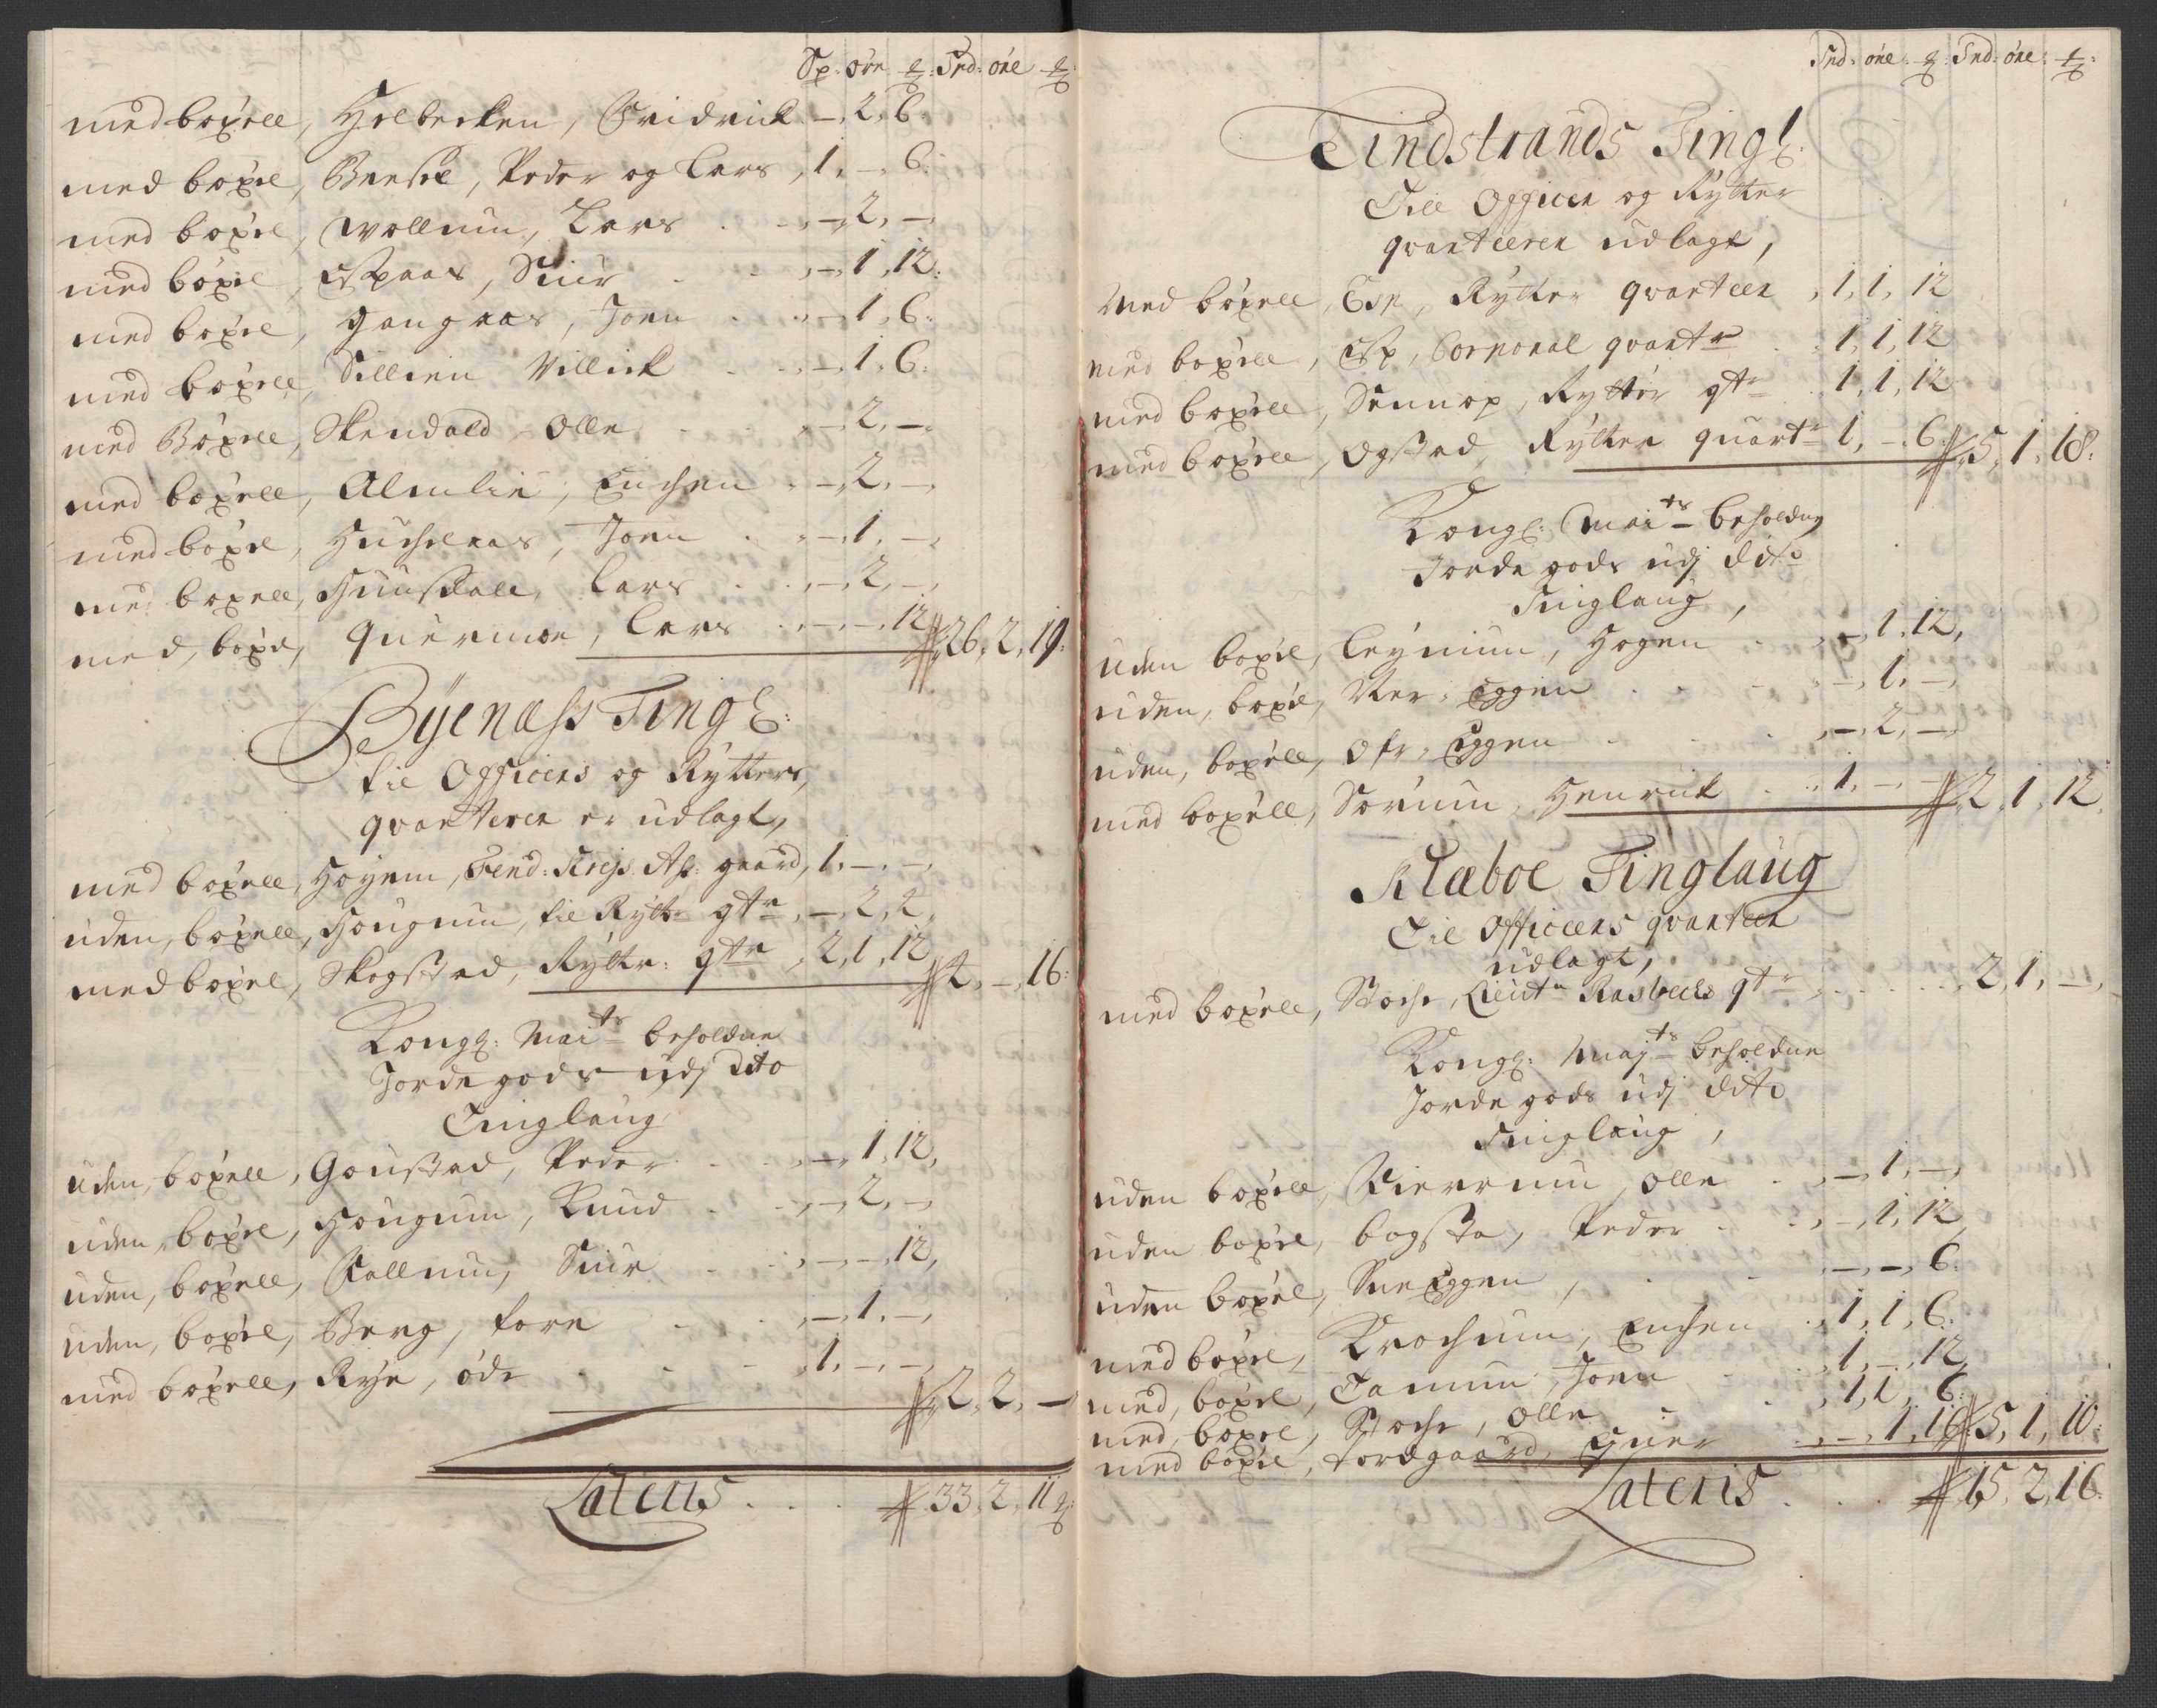 Sp: öre ℔: Spd: öre ℔:
med boxell, Holbecken, Fridrick – 2, 6.
med boxel, Brusek, Peder og Lars, 1, –, 6.
med boxel, Wollum, Lars – 2, –
med boxel, Espaas, Siur – 1, 12:
med boxel, Gangaas, Joen – 1, 6:
med boxell, Sillien Millick – 1, 6:
med Boxell, Skendald, Olle – 2, –
med boxell, Almlie, Enchen – 2, –
med boxel, Huchelaas, Joen – 1, –
med boxell, Huusdall, Lars – 2, –
med, boxel, Quernmoe, Lars – – 12 // 26, 2, 19:
Byenæss Tingl:
til Officers og Rytters,
qvarteren er udlagt,
med boxell, Höyem, Fend: Krejs. Af: gaard, 1, –, –
uden, boxell, Hougum, til Rytt: qtr – 2, 2,
med boxel, Skogstad, Ryttr: qttr, 2, 1, 12 // 4, –, 16:
Kongl: Maits beholdne
Jorde gods udj dito
Tinglaug
uden, boxell, Goustad, Peder – 1, 12,
uden, boxel, Hougum, Knud – 2, –
uden, boxell, Fallum, Siur – – 12,
uden, boxel, Berg, Tore – 1, –
med boxell, Rye, öde 1, –, –
// 2, 2, –
Lateris // 33, 2, 11 ℔:
Spd: öre: ℔: Spd: öre: ℔:
Tindstrands Tingl:
Till Officer og Rytter
qvarteeren udlagt,
Med boxell, Esp, Rytter qvarteer, 1, 1, 12
med boxell, Esp, Corporal qvartr 1, 1, 12
med boxell, Sennop, Rytter qtr 1, 1, 12
med boxell, Ogstad, Rytter quartr 1, –, 6 // 5, 1, 18:
Kongl: Maits beholdng
Jorde gods udj dito
Tinglaug,
uden boxel, Leynum, Hogen – 1, 12,
uden, boxel, Ner: Eggen – 1, –
uden, boxell, Ofr: Eggen – 2, –
med boxell, Sorum, Henrick 1, –, – // 2, 1, 12.
Klæboe Tinglaug
Til Officeers qvarteer
udlagt,
med boxell, Stoche, Lieutn Rasbechs qtr 2, 1, –,
Kongl: Majts beholdne
Jorde gods udj dito
Tinglaug,
uden boxell, Fierrum, Olle – 1, –,
uden boxel, Bogsta, Peder – 1, 12
uden boxel, SneEggen, –, –, 6.
med boxel, Krochum, Enchen 1, 1, 6.
med, boxel, Tanum, Joen 1, –, 12,
med, boxel, Stoche, Olle 1, 1, 6:
med boxel, Tordgaard, Einer – 1, 16 // 5, 1, 10:
Lateris // 15, 2, 16.